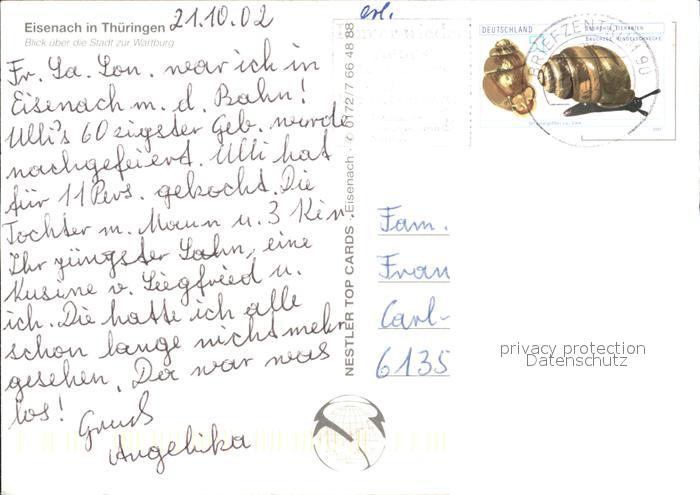 Eisenach in Thüringen 21.10.02
Blick über die Stadt zur Wartburg
Fr. Sa. Son. war ich in
Eisenach m. d. Bahn!
Ulli's 60 zigster Geb. wurde
nachgefeiert. Ulli hat
für 11 Pers. gekocht. Die
Tochter m. Mann u. 3 Kin
Ihr jüngster Sohn, eine
Kusine v. Siegfried u.
ich. Die hatte ich alle
schon lange nicht mehr
gesehen. Da war was
los! Gruß
Angelika
NESTLER TOP CARDS · Eisenach · 0172/7 66 48 88
erl.
DEUTSCHLAND
BAUCHIGE WINDELSCHNECKE
BRIEFZENTRUM 90
Fam.
Fran
Carl-
6135
privacy protection
Datenschutz